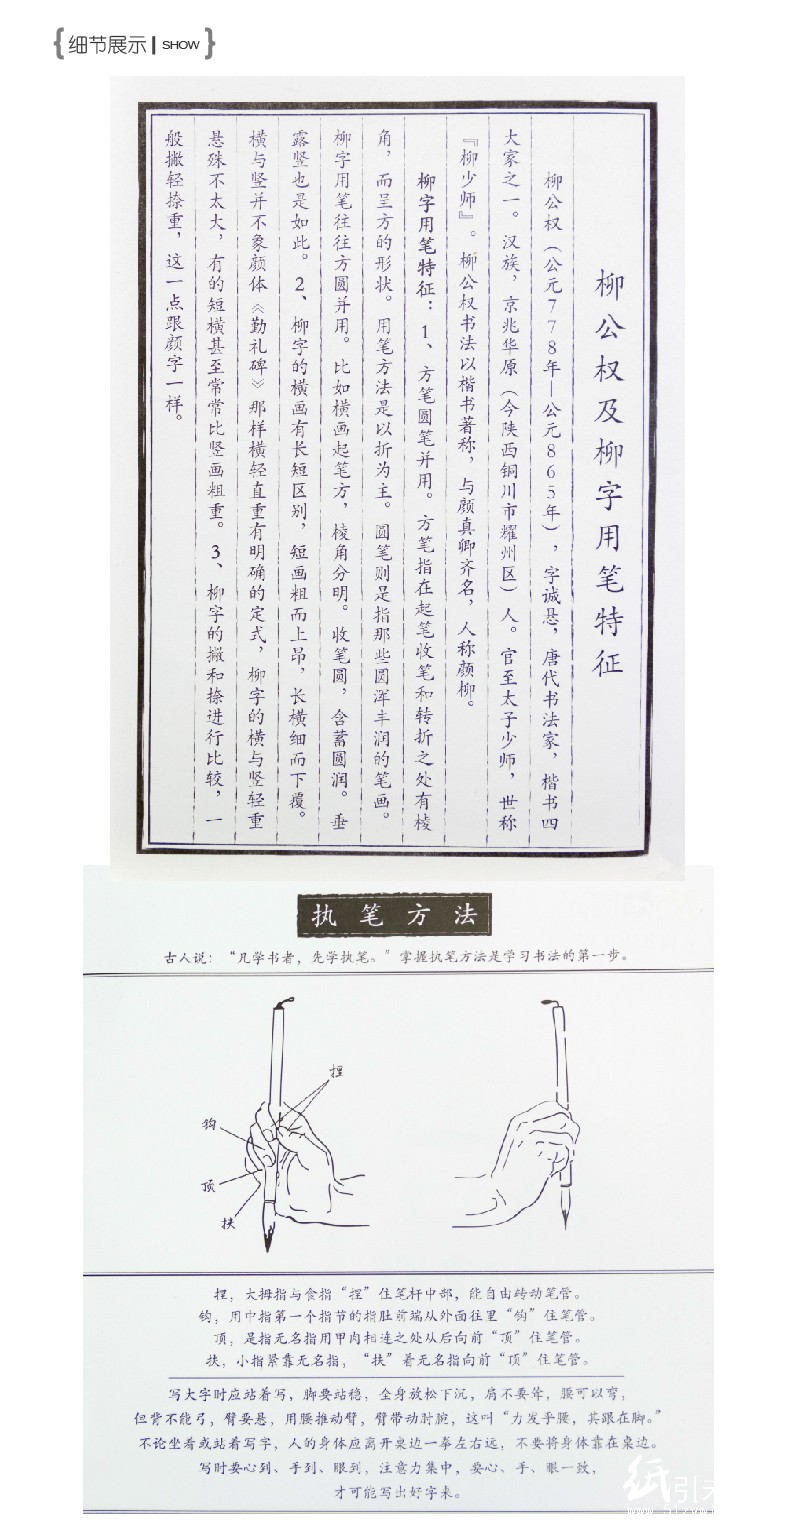 细节展示 SHOW
柳公权及柳字用笔特征
柳公权（公元778年—公元865年），字诚悬，唐代书法家，楷书四
大家之一。汉族，京兆华原（今陕西铜川市耀州区）人。官至太子少师，世称
『柳少师』。柳公权书法以楷书著称，与颜真卿齐名，人称颜柳。
柳字用笔特征：1、方笔圆笔并用。方笔指在起笔收笔和转折之处有棱
角，而呈方的形状。用笔方法是以折为主。圆笔则是指那些圆浑丰润的笔画。
柳字用笔往往方圆并用。比如横画起笔方，棱角分明。收笔圆，含蓄圆润。垂
露竖也是如此。2、柳字的横画有长短区别，短画粗而上昂，长横细而下覆。
横与竖并不象颜体《勤礼碑》那样横轻直重有明确的定式，柳字的横与竖轻重
悬殊不太大，有的短横甚至常常比竖画粗重。3、柳字的撇和捺进行比较，一
般撇轻捺重，这一点跟颜字一样。
执笔方法
古人说：“凡学书者，先学执笔。”掌握执笔方法是学习书法的第一步。
捏
钩
顶
扶
捏，大拇指与食指“捏”住笔杆中部，能自由转动笔管。
钩，用中指第一个指节的指肚前端从外面往里“钩”住笔管。
顶，是指无名指用甲肉相连之处从后向前“顶”住笔管。
扶，小指紧靠无名指，“扶”着无名指向前“顶”住笔管。
写大字时应站着写，脚要站稳，全身放松下沉，肩不要耸，腰可以弯，
但背不能弓，臂要悬，用腰推动臂，臂带动肘腕，这叫“力发乎腰，其跟在脚。”
不论坐着或站着写字，人的身体应离开桌边一拳左右远，不要将身体靠在桌边。
写时要心到、手到、眼到，注意力集中，要心、手、眼一致，
才可能写出好字来。
纸引未